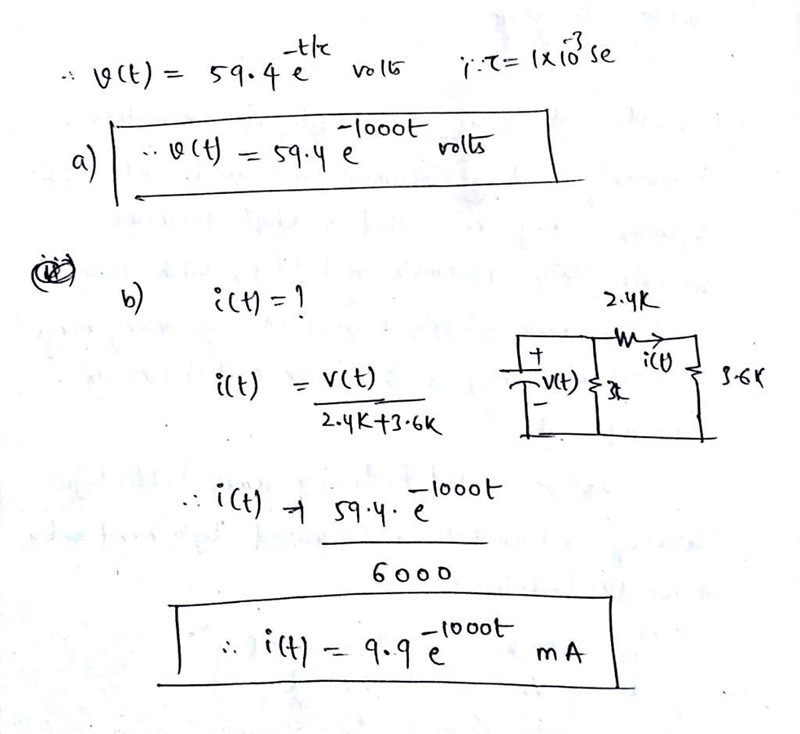 ∴ v(t) = 59.4 e^{-t/τ} volts ∵ τ = 1×10^{-3} Se
a) ∴ v(t) = 59.4 e^{-1000t} volts
b) i(t) = ?
i(t) = v(t) / 2.4K+3.6K
2.4K
i(t)
+
V(t)
-
3K
3.6K
∴ i(t) → 59.4. e^{-1000t} / 6000
∴ i(t) = 9.9 e^{-1000t} mA